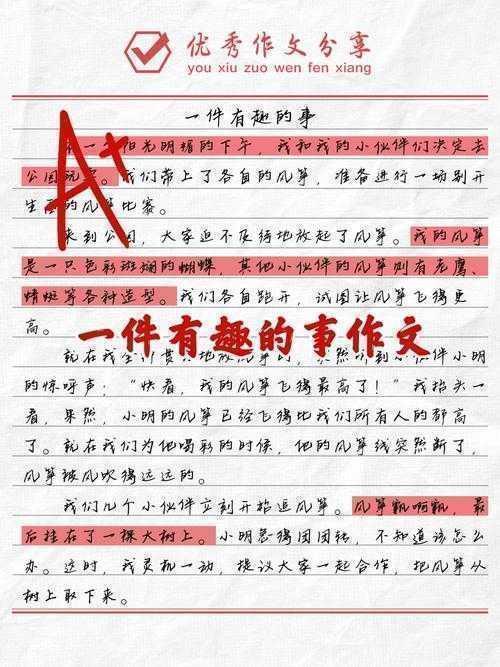 优秀作文分享
you xiu zuo wen fen xiang
一件有趣的事
A+
一 阳光明媚的下午，我和我的小伙伴们决定去
公园玩 。我们带上了各自的风筝，准备进行一场别开
生 的风筝比赛。
来到公园，大家迫不及待地放起了风筝。我的风筝
是一只色彩斑斓的蝴蝶，其他小伙伴的风筝则有老鹰、
蜻蜓等各种造型。我们各自跑开，试图让风筝飞得更
高。
一件有趣的事作文
就在我全 贯 地放风筝 听到小伙伴小明
的惊呼声：“快看，我的风筝飞得最高了！”我抬头一
看，果然，小明的风筝已经飞得比我们所有人的都高
了。就在我们为他喝彩的时候，他的风筝线突然断了，
风筝被风吹得远远的。
我们几个小伙伴立刻开始追风筝。风筝飘啊飘，最
后挂在了一棵大树上。小明急得团团转，不知道该怎么
办。这时，我灵机一动，提议大家一起合作，把风筝从
树上取下来。